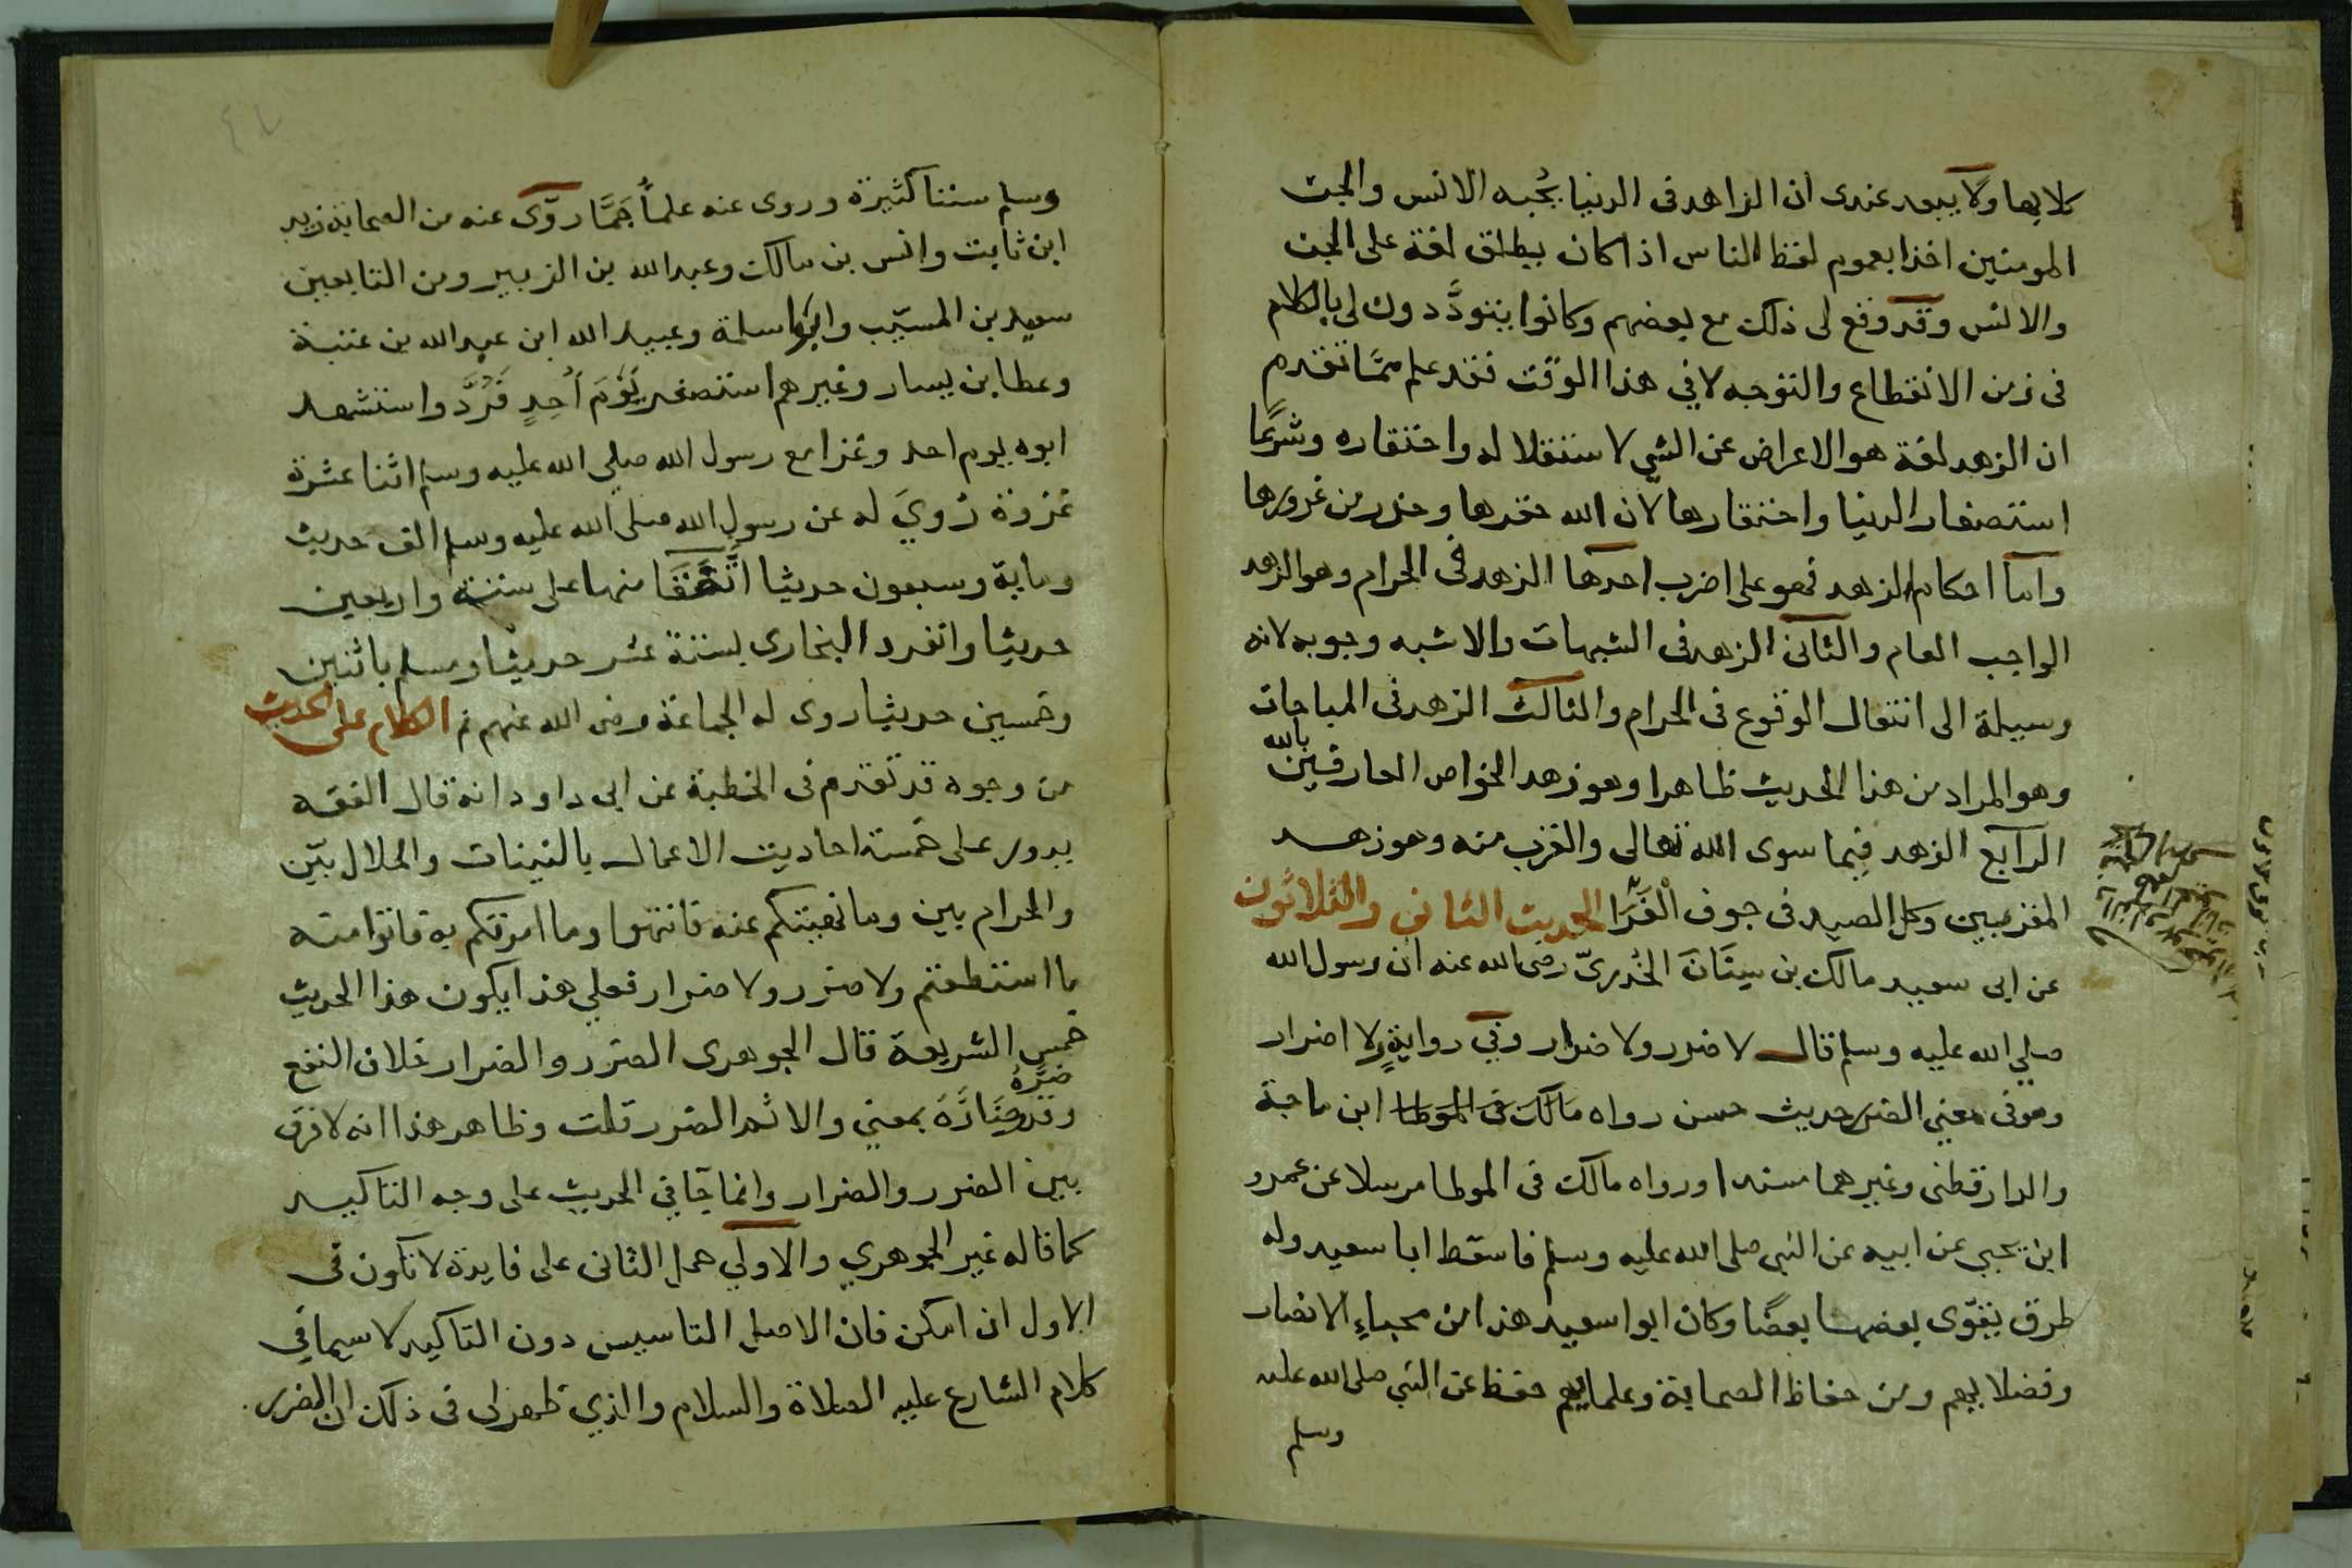 كلابها ولا يبعد عندى ان الزاهد فى الدنيا يُحبه الانس والجن
المومنين اخذا بعموم لفظ الناس اذا كان يطلق لغة على الجن
والانس وقد وقع لى ذلك مع بعضهم وكانوا يتودَّدون لى بالكلام
فى زمن الانقطاع والتوجه لا في هذا الوقت فقد علم ممَّا تقدم
ان الزهد لغة هو الاعراض عن الشي لاستقلاله واحتقاره وشرعًا
استصغار الدنيا واحتقارها لان الله حقرها وحذر من غرورها
واما احكام الزهد فهو على اضرب احدها الزهد فى الحرام وهو الزهد
الواجب العام والثانى الزهد فى الشبهات والاشبه وجوبه لانه
وسيلة الى انتقال الوقوع فى الحرام والثالث الزهد فى المباحات
وهو المراد من هذا الحديث ظاهرا وهو زهد الخواص العارفين بالله
الرابع الزهد فيما سوى الله تعالى والقرب منه وهو زهد
المقربين وكل الصيد فى جوف الْفَرَا الحديث الثانى والثلاثون
عن ابى سعيد مالك بن سِنَانَ الخُدريّ رضى الله عنه ان رسول الله
صلي الله عليه وسلم قال لا ضرر ولا ضرار وفي روايةٍ ولا اضرار
وهو فى معنى الضرر حديث حسن رواه مالك فى الموطا ابن ماجة
والدارقطنى وغيرهما مسندا ورواه مالك فى الموطا مرسلا عن عمرو
ابن يحيى عن ابيه عن النبى صلى الله عليه وسلم فاسقط ابا سعيد وله
طرق يقوّى بعضها بعضًا وكان ابوا سعيد هذا من نجباءِ الانصار
وفضلايهم ومن حفاظ الصحابة وعلمايهم حفظ عن النبي صلى الله عليه
وسلم
وسلم سننا كثيرة وروى عنه علماً جَمَّا روَى عنه من الصحابة زيد
ابن ثابت وانس بن مالك وعبد الله بن الزبير ومن التابعين
سعيد بن المسيّب وابوا سلمة وعبيد الله ابن عبد الله بن عتبة
وعطا بن يسار وغيرهم استصغر يَوْمَ اُحِدٍ فَرُدَّ واستشهد
ابوه يوم احد وغزا مع رسول الله صلي الله عليه وسلم اثنا عشرة
غزوة رُوِيَ له عن رسول الله صلى الله عليه وسلم الف حديث
وماية وسبعون حديثا اتَّفَقَا منها على ستة واربعين
حديثا وانفرد البخارى بستة عشر حديثا ومسلم باثنين
وخمسين حديثا روى له الجماعة رضى الله عنهم ثم الكلام على الحديث
من وجوه قد تقدم فى الخطبة عن ابى داود انه قال الفقه
يدور على خمسة احاديث الاعمال بالنيات والحلال بيّن
والحرام بين وما نهيتكم عنه فانتهوا وما امرتكم به فاتوا منه
ما استطعتم ولا ضرر ولا ضرار فعلي هذا يكون هذا الحديث
خمس الشريعة قال الجوهرى الضرر والضرار خلاف النفع
وقد ضَرَّهُ وضَارَّهُ بمعني والاثم الضرر قلت وظاهر هذا انه لا فرق
بين الضرر والضرار وانما جَا في الحديث على وجه التاكيد
كما قاله غير الجوهري والاولي حمل الثانى على فايدة لا تكون فى
الاول ان امكن فان الاصل التاسيس دون التاكيد لا سيما في
كلام الشارع عليه الصلاة والسلام والذي ظهر لى فى ذلك ان الضرر